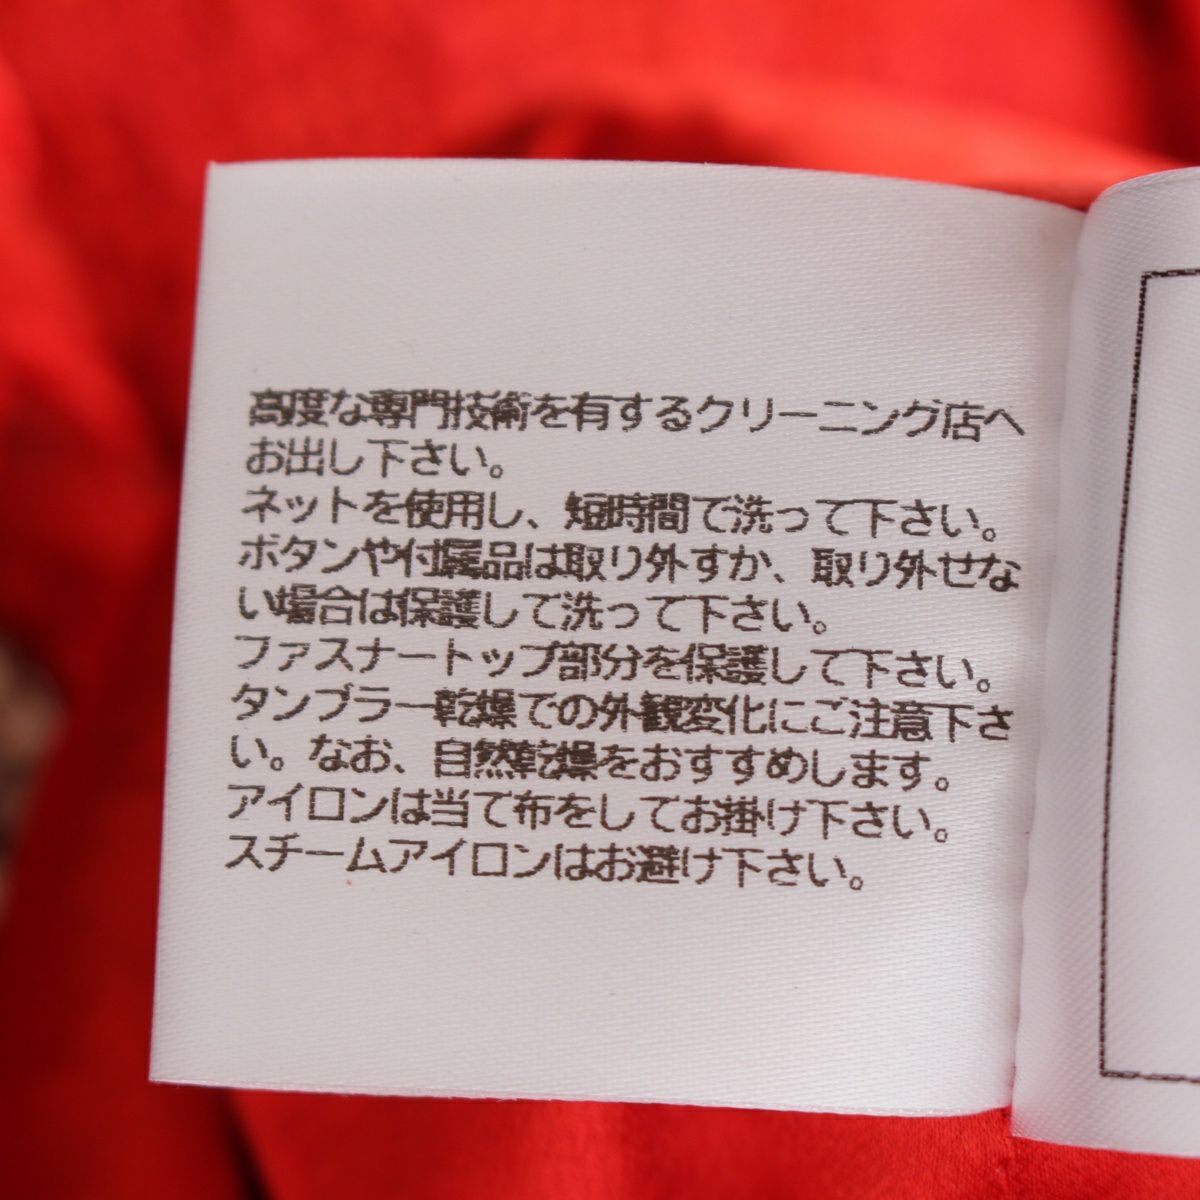 高度な専門技術を有するクリーニング店へ
お出し下さい。
ネットを使用し、短時間で洗って下さい。
ボタンや付属品は取り外すか、取り外せな
い場合は保護して洗って下さい。
ファスナートップ部分を保護して下さい。
タンブラー乾燥での外観変化にご注意下さ
い。なお、自然乾燥をおすすめします。
アイロンは当て布をしてお掛け下さい。
スチームアイロンはお避け下さい。